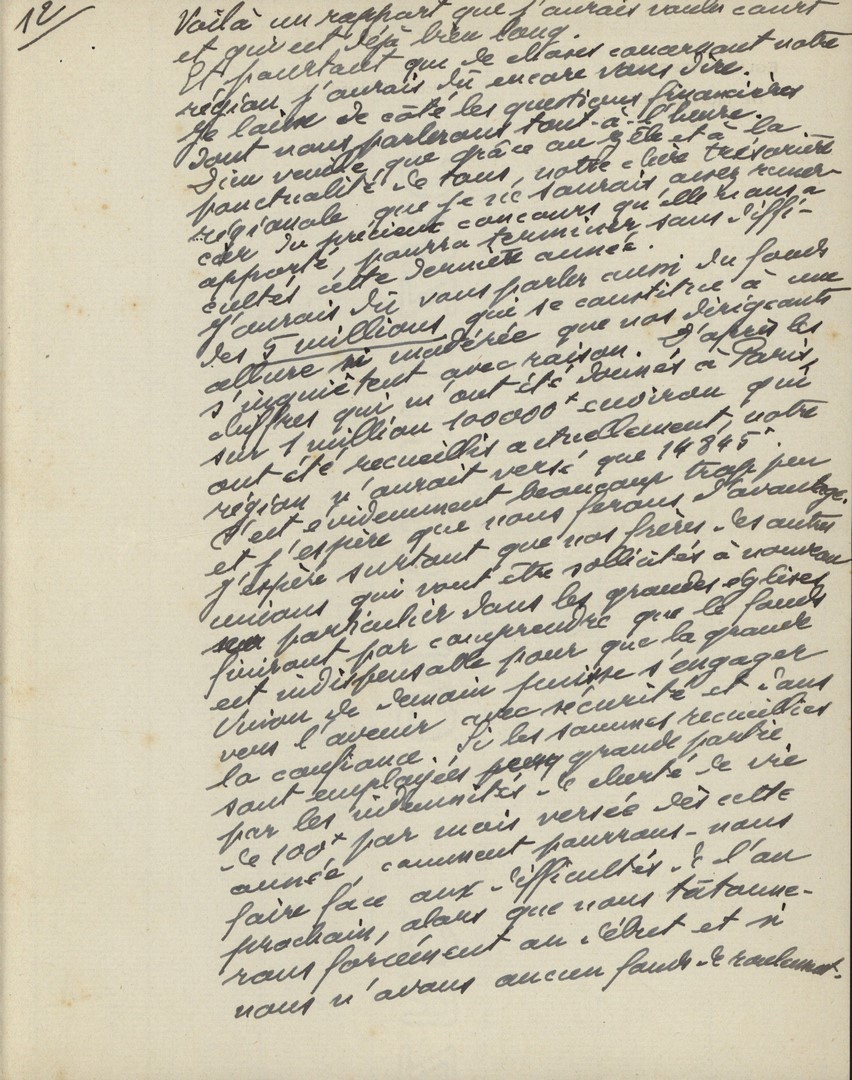 12/
Voilà un rapport que j'aurais voulu court
et qui est déjà bien long.
Et pourtant que de choses concernant notre
région j'aurais dû encore vous dire.
Je laisse de côté les questions financières
dont nous parlerons tout-à-l'heure.
Dieu veuille que grâce au zèle et à la
ponctualité de tous, notre chère trésorière
régionale que je ne saurais assez remer-
cier du précieux concours qu'elle m'a
apporté, pourra terminer sans diffi-
cultés cette dernière année.
J'aurais dû vous parler aussi du fonds
des 5 millions qui se constitue à une
allure si modérée que nos dirigeants
s'inquiètent avec raison. D'après les
chiffres qui m'ont été donnés à Paris,
sur 1 million 100000 environ qui
ont été recueillis actuellement, notre
région n'aurait versé que 14845.
C'est évidemment beaucoup trop peu
et j'espère que nous ferons d'avantage.
J'espère surtout que nos frères des autres
unions qui vont être sollicités à nouveau
particulier dans les grandes églises
finiront par comprendre que le fonds
est indispensable pour que la grande
Union de demain puisse s'engager
vers l'avenir avec sécurité et dans
la confiance. Si les sommes recueillies
sont employées grande partie
par les indemnités de cherté de vie
de 100 par mois versée dès cette
année, comment pourrons-nous
faire face aux difficultés de l'an
prochain, alors que nous tâtonne-
rons forcément au début et si
nous n'avons aucun fonds de roulement.